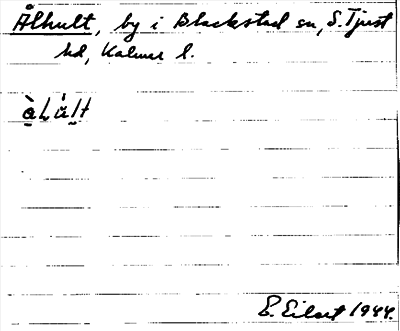 Ålhult, by i Blackstad sn, S. Tjust
hd, Kalmar l.
E. Eilert 1944.